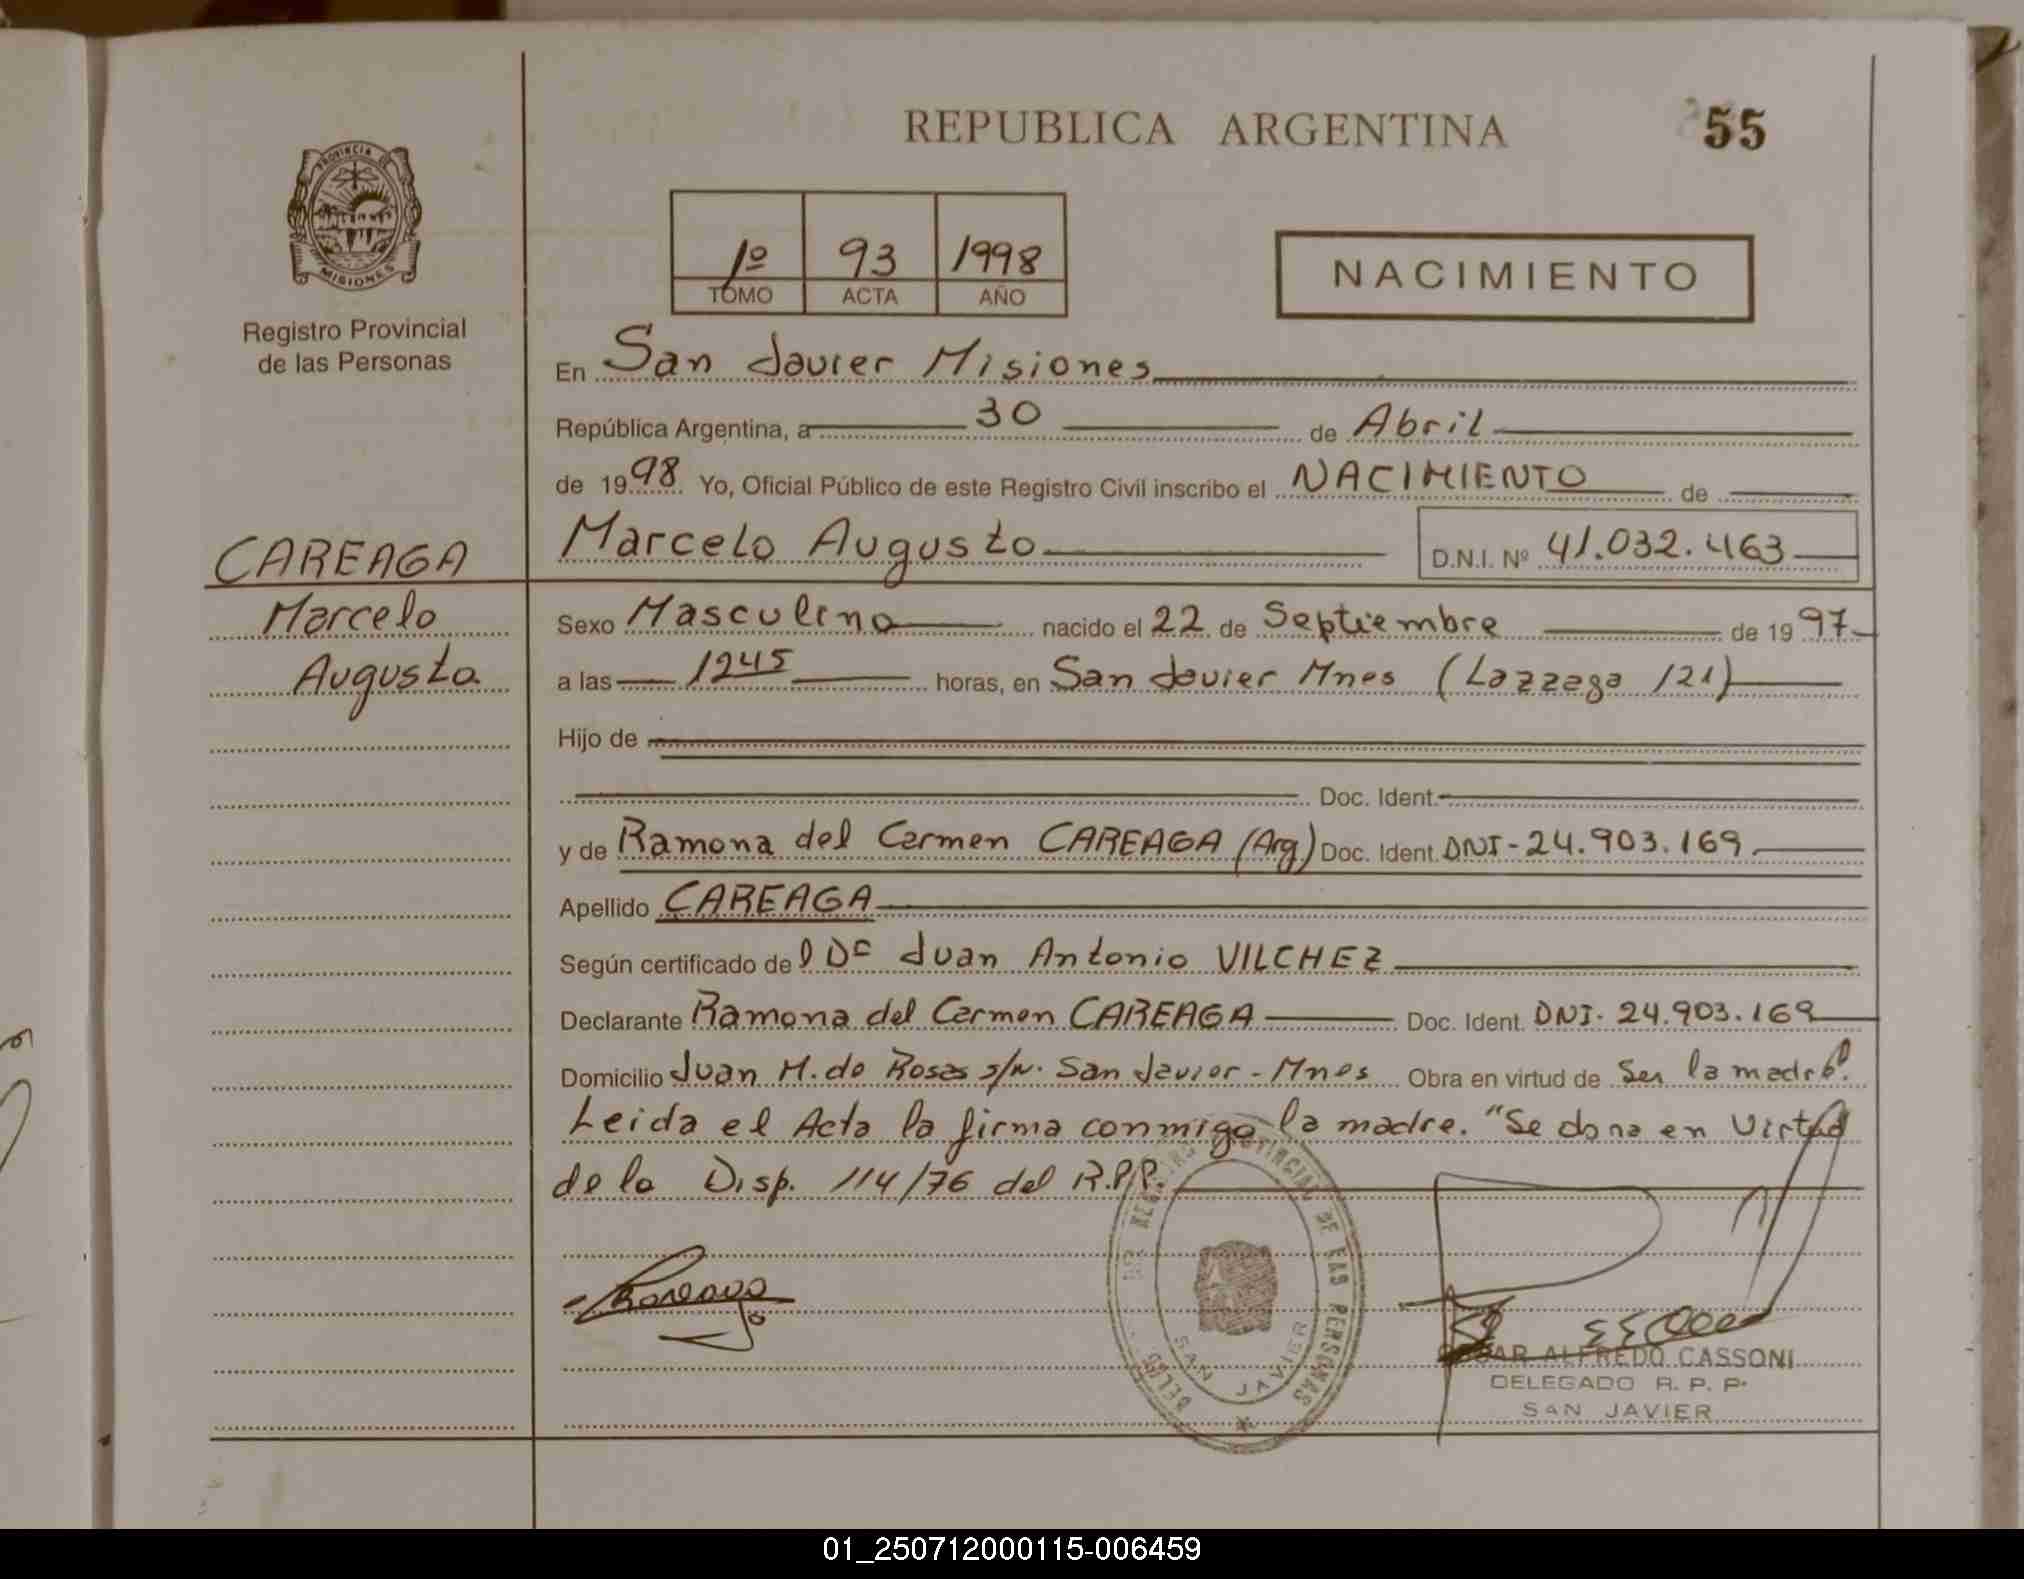 REPUBLICA ARGENTINA
55
PROVINCIA DE
MISIONES
Registro Provincial
de las Personas
1º 93 1998
TOMO ACTA AÑO
NACIMIENTO
En San Javier Misiones
República Argentina, a 30 de Abril
de 1998 Yo, Oficial Público de este Registro Civil inscribo el NACIMIENTO de
Marcelo Augusto D.N.I. Nº 41.032.463
CAREAGA
Marcelo
Augusto
Sexo Masculino nacido el 22 de Septiembre de 1997
a las 1245 horas, en San Javier Mnes (Lazzaga 121)
Hijo de
Doc. Ident.
y de Ramona del Carmen CAREAGA (Arg) Doc. Ident. DNI-24.903.169
Apellido CAREAGA
Según certificado del Dr Juan Antonio VILCHEZ
Declarante Ramona del Carmen CAREAGA Doc. Ident. DNI. 24.903.169
Domicilio Juan M. de Rosas s/n. San Javier - Mnes Obra en virtud de Ser la madre.
Leida el Acta la firma conmigo la madre. "Se dona en Virtud
de la Disp. 114/76 del R.P.P.
DELEG. DEL REGISTRO PROVINCIAL DE LAS PERSONAS
SAN JAVIER
Careaga
ALFREDO CASSONI
DELEGADO R. P. P.
SAN JAVIER
01_250712000115-006459